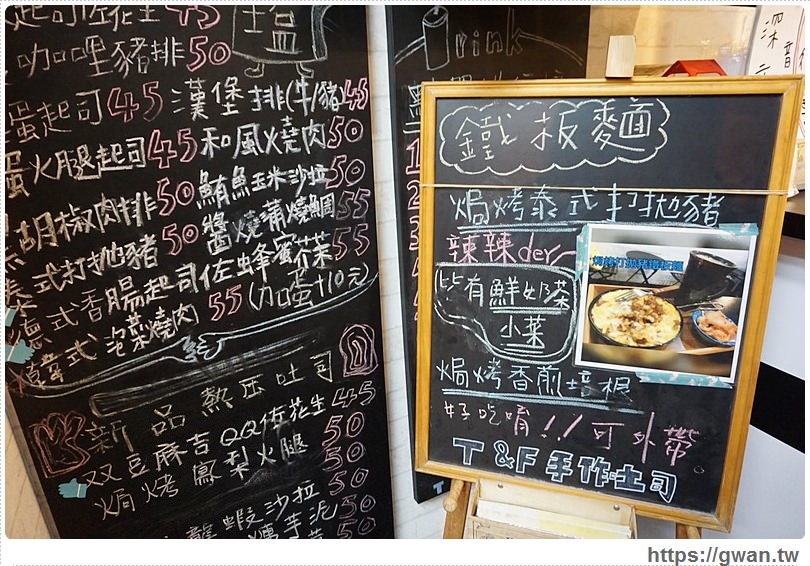 起司花生 45
咖哩豬排 50
蛋起司 45 漢堡排(牛/豬 45
蛋火腿起司 45 和風燒肉 50
胡椒肉排 50 鮪魚玉米沙拉 50
泰式打拋豬 50 醬燒蒲燒鯛 55
德式香腸起司佐蜂蜜芥茉 55
韓式泡菜燒肉 55 (加蛋+10元)
新品熱压吐司
双豆麻吉QQ佐花生 45
焗烤鳳梨火腿 50
龍蝦沙拉 50
芋泥 50
50
Drink
鐵板麵
焗烤泰式打拋豬
辣辣der~
皆有鮮奶茶
小菜
焗烤打拋豬鐵板麵
焗烤香煎培根
好吃唷!! 可外帶
T & F 手作吐司
深
音
https://gwan.tw